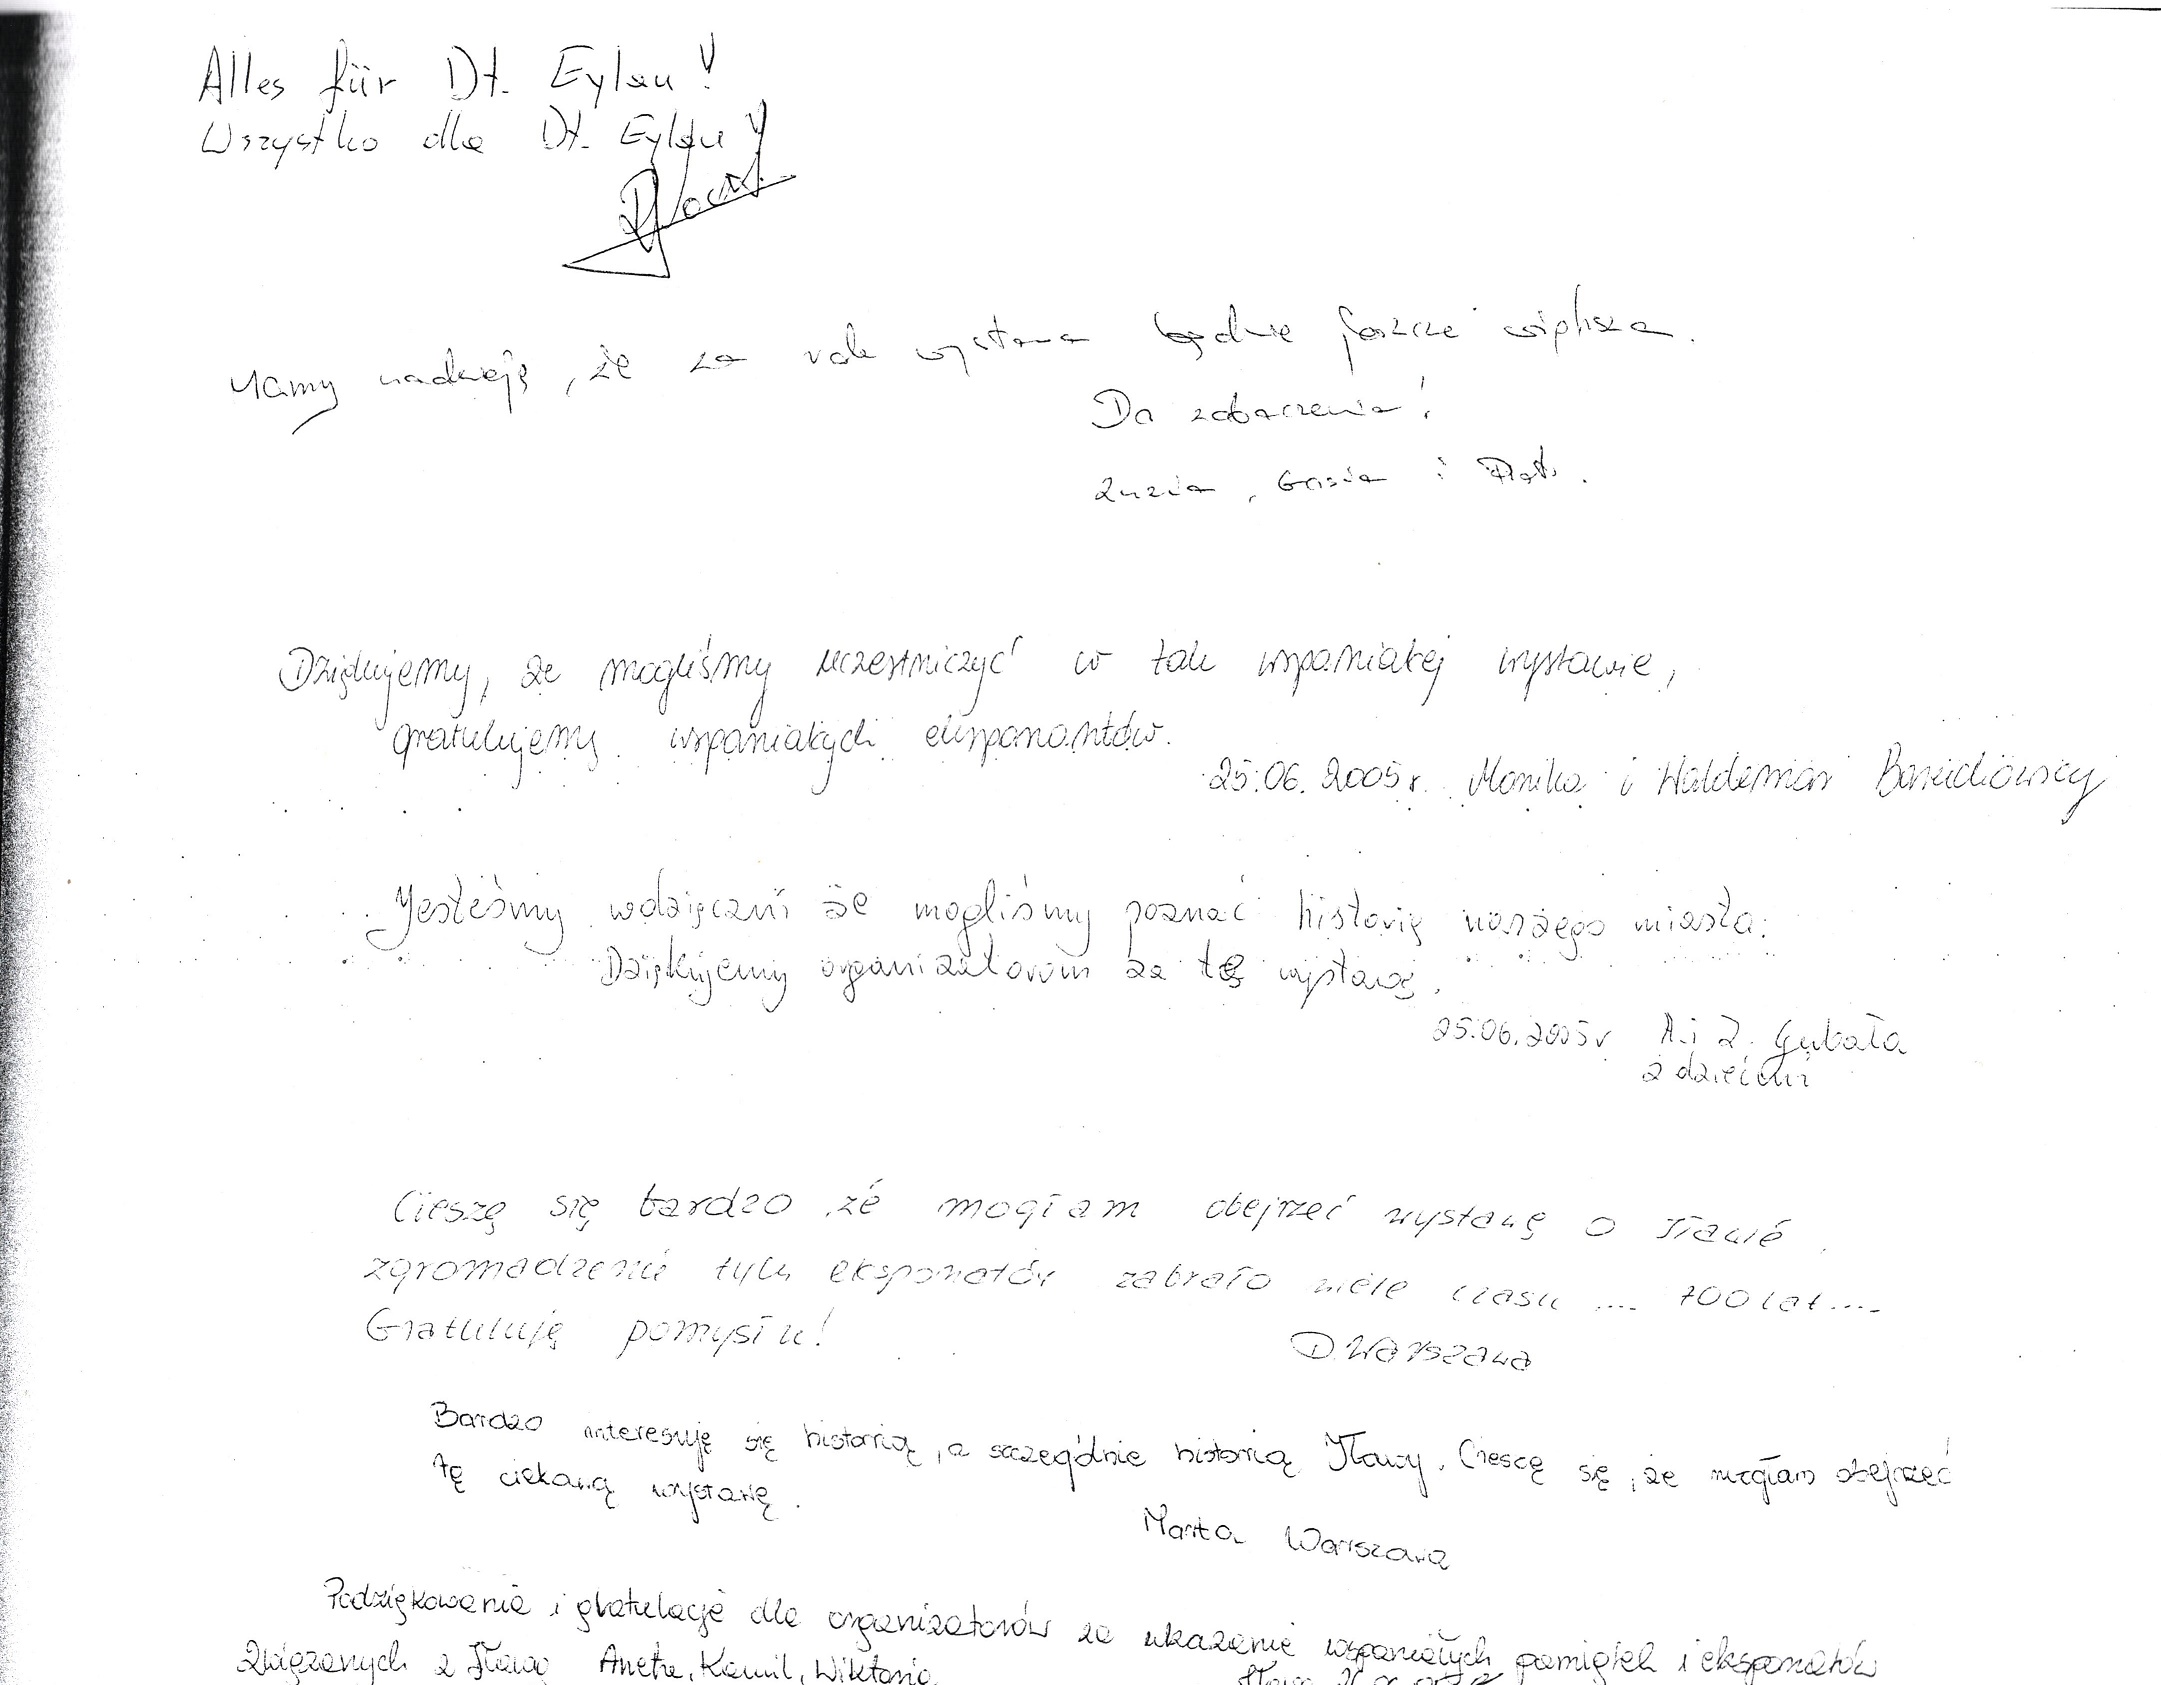 Alles für Dt. Eylau!
Wszystko dla Dt. Eylau!
Mamy nadzieję, że za rok wystawa będzie jeszcze większa.
Do zobaczenia!
Zuzia, Gosia i Piotr.
Dziękujemy, że mogliśmy uczestniczyć w tak wspaniałej wystawie,
gratulujemy wspaniałych eksponantów.
25.06.2005r. Monika i Waldemar
Jesteśmy wdzięczni że mogliśmy poznać historię naszego miasta.
Dziękujemy organizatorom za tę wystawę.
25.06.2005r A. i Z. Gubała
z dziećmi
Cieszę się bardzo że mogłam obejrzeć wystawę o Iławie.
zgromadzenie tylu eksponatów zabrało wiele czasu .... 700 lat ....
Gratuluję pomysłu!
D. Warszawa
Bardzo interesuję się historią, a szczególnie historią Iławy. Cieszę się, że mogłam obejrzeć
tę ciekawą wystawę.
Marta Warszawa
Podziękowania i gratulacje dla organizatorów za ukazanie wspaniałych pamiątek i eksponatów
związanych z Iławą Aneta, Kamil, Wiktoria
Iława